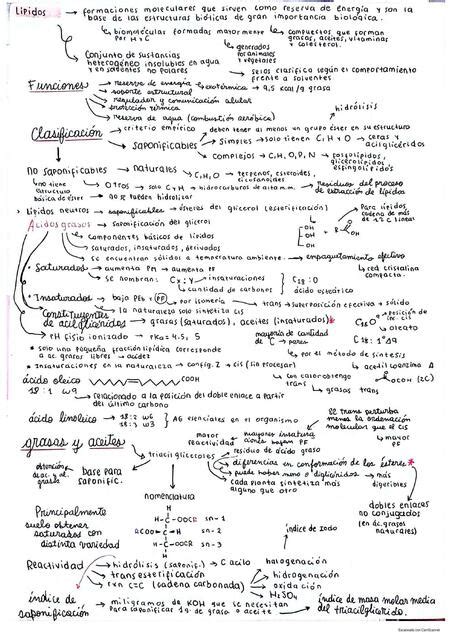 Lípidos → formaciones moleculares que sirven como reserva de energía y son la
base de las estructuras bióticas de gran importancia biológica.
biomolécular formadas mayormente por H y C
compuestos que forman grasas, aceites, vitaminas y colesterol.
Conjunto de sustancias heterogéneo insolubles en agua y en solventes no polares
generados por animales y vegetales
se los clasifica según el comportamiento frente a solventes
Funciones
reserva de energía → exotérmica → 9,5 kcal/g grasa
soporte estructural
regulador y comunicación celular
protección térmica
reserva de agua (combustión aeróbica)
hidrólisis
Clasificación
criterio empírico
deben tener al menos un grupo éster en su estructura
saponificables
simples → solo tienen C, H y O → ceras y acilgliceridos
complejos → C, H, O, P, N → fosfolípidos, glicerolípidos, esfingolípidos
no saponificables → naturales → C, H, O → terpenos, esteroides, eicosanoides
no tiene estructura básica de éster
Otros → solo C y H → hidrocarburos de alto p.m.
no se pueden hidrolizar
residuos del proceso de extracción de lípidos
> Lípidos neutros → saponificables → ésteres del glicerol (esterificación)
Para lípidos cadena de más de 12 C lineal
Ácidos grasos → saponificación del glicerol
OH
OH
OH
componentes básicos de lípidos
saturados, insaturados, derivados
se encuentran sólidos a temperatura ambiente → empaquetamiento efectivo
red cristalina compacta.
• Saturados → aumenta PM → aumenta PF
se nombran: Cx:y → insaturaciones
cantidad de carbonos
C18:0
ácido esteárico
• Insaturados → bajo PEb y PF → por isomería → trans → superposición efectiva → sólido
la naturaleza solo sintetiza cis
Constituyentes de acilglicéridos → grasas (saturados), aceites (insaturados)*
posición de inic cis
oleato
pH fisio ionizado → pKa = 4.5, 5
mayoría de cantidad de C → pares
C18:1 Δ9
* solo una pequeña fracción lipídica corresponde a ac. grasos libres → acidez
por el método de síntesis
acetil coenzima A
(2C)
* Insaturaciones en la naturaleza → config. Z → cis (sin procesar)
con calor obtengo trans → grasas trans
ácido oleico
COOH
18:1 w9
relacionado a la posición del doble enlace a partir del último carbono
ácido linoleico → 18:2 w6
18:3 w3
AG esenciales en el organismo
se trans perturba menos la ordenación molecular que el cis
mayor PF
grasas y aceites
mayor reactividad
triacilgliceroles
residuo de ácido graso
diferencias en conformación de los ésteres *
puede haber mono o diglicéridos → más digeribles
cada planta sintetiza más alguno que otro
base para saponific.
dobles enlaces no conjugados
(en ác. grasos naturales)
nomenclatura
Principalmente suelo obtener saturados con distinta variedad
H-C-OOCR sn-1
RCOO-C-H sn-2
H-C-OOCR sn-3
H
índice de Iodo
Reactividad
hidrólisis (saponif.) → C acilo
transesterificación
rxn C=C (cadena carbonada)
halogenación
hidrogenación
oxidación
H2SO4
índice de saponificación
miligramos de KOH que se necesitan para saponificar 1g de grasa o aceite
índice de masa molar media del triacilglicérido.
Escaneado con CamScanner